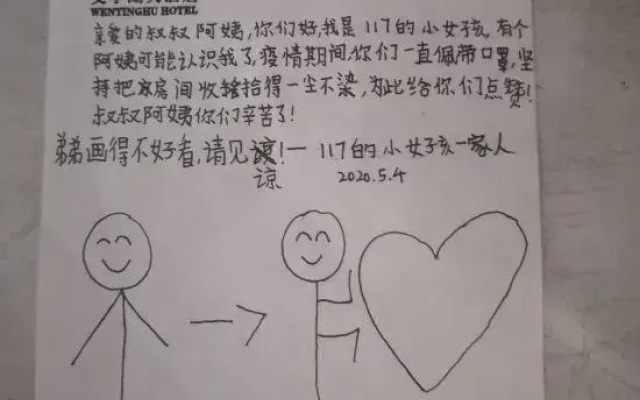 WENTINGHU HOTEL
亲爱的叔叔阿姨,你们好,我是117的小女孩,有个
阿姨可能认识我了,疫情期间,你们一直佩带口罩,坚
持把房间收拾得一尘不染,为此给你们点赞!
叔叔阿姨你们辛苦了!
弟弟画得不好看,请见谅!一 117的小女孩一家人
谅 2020.5.4